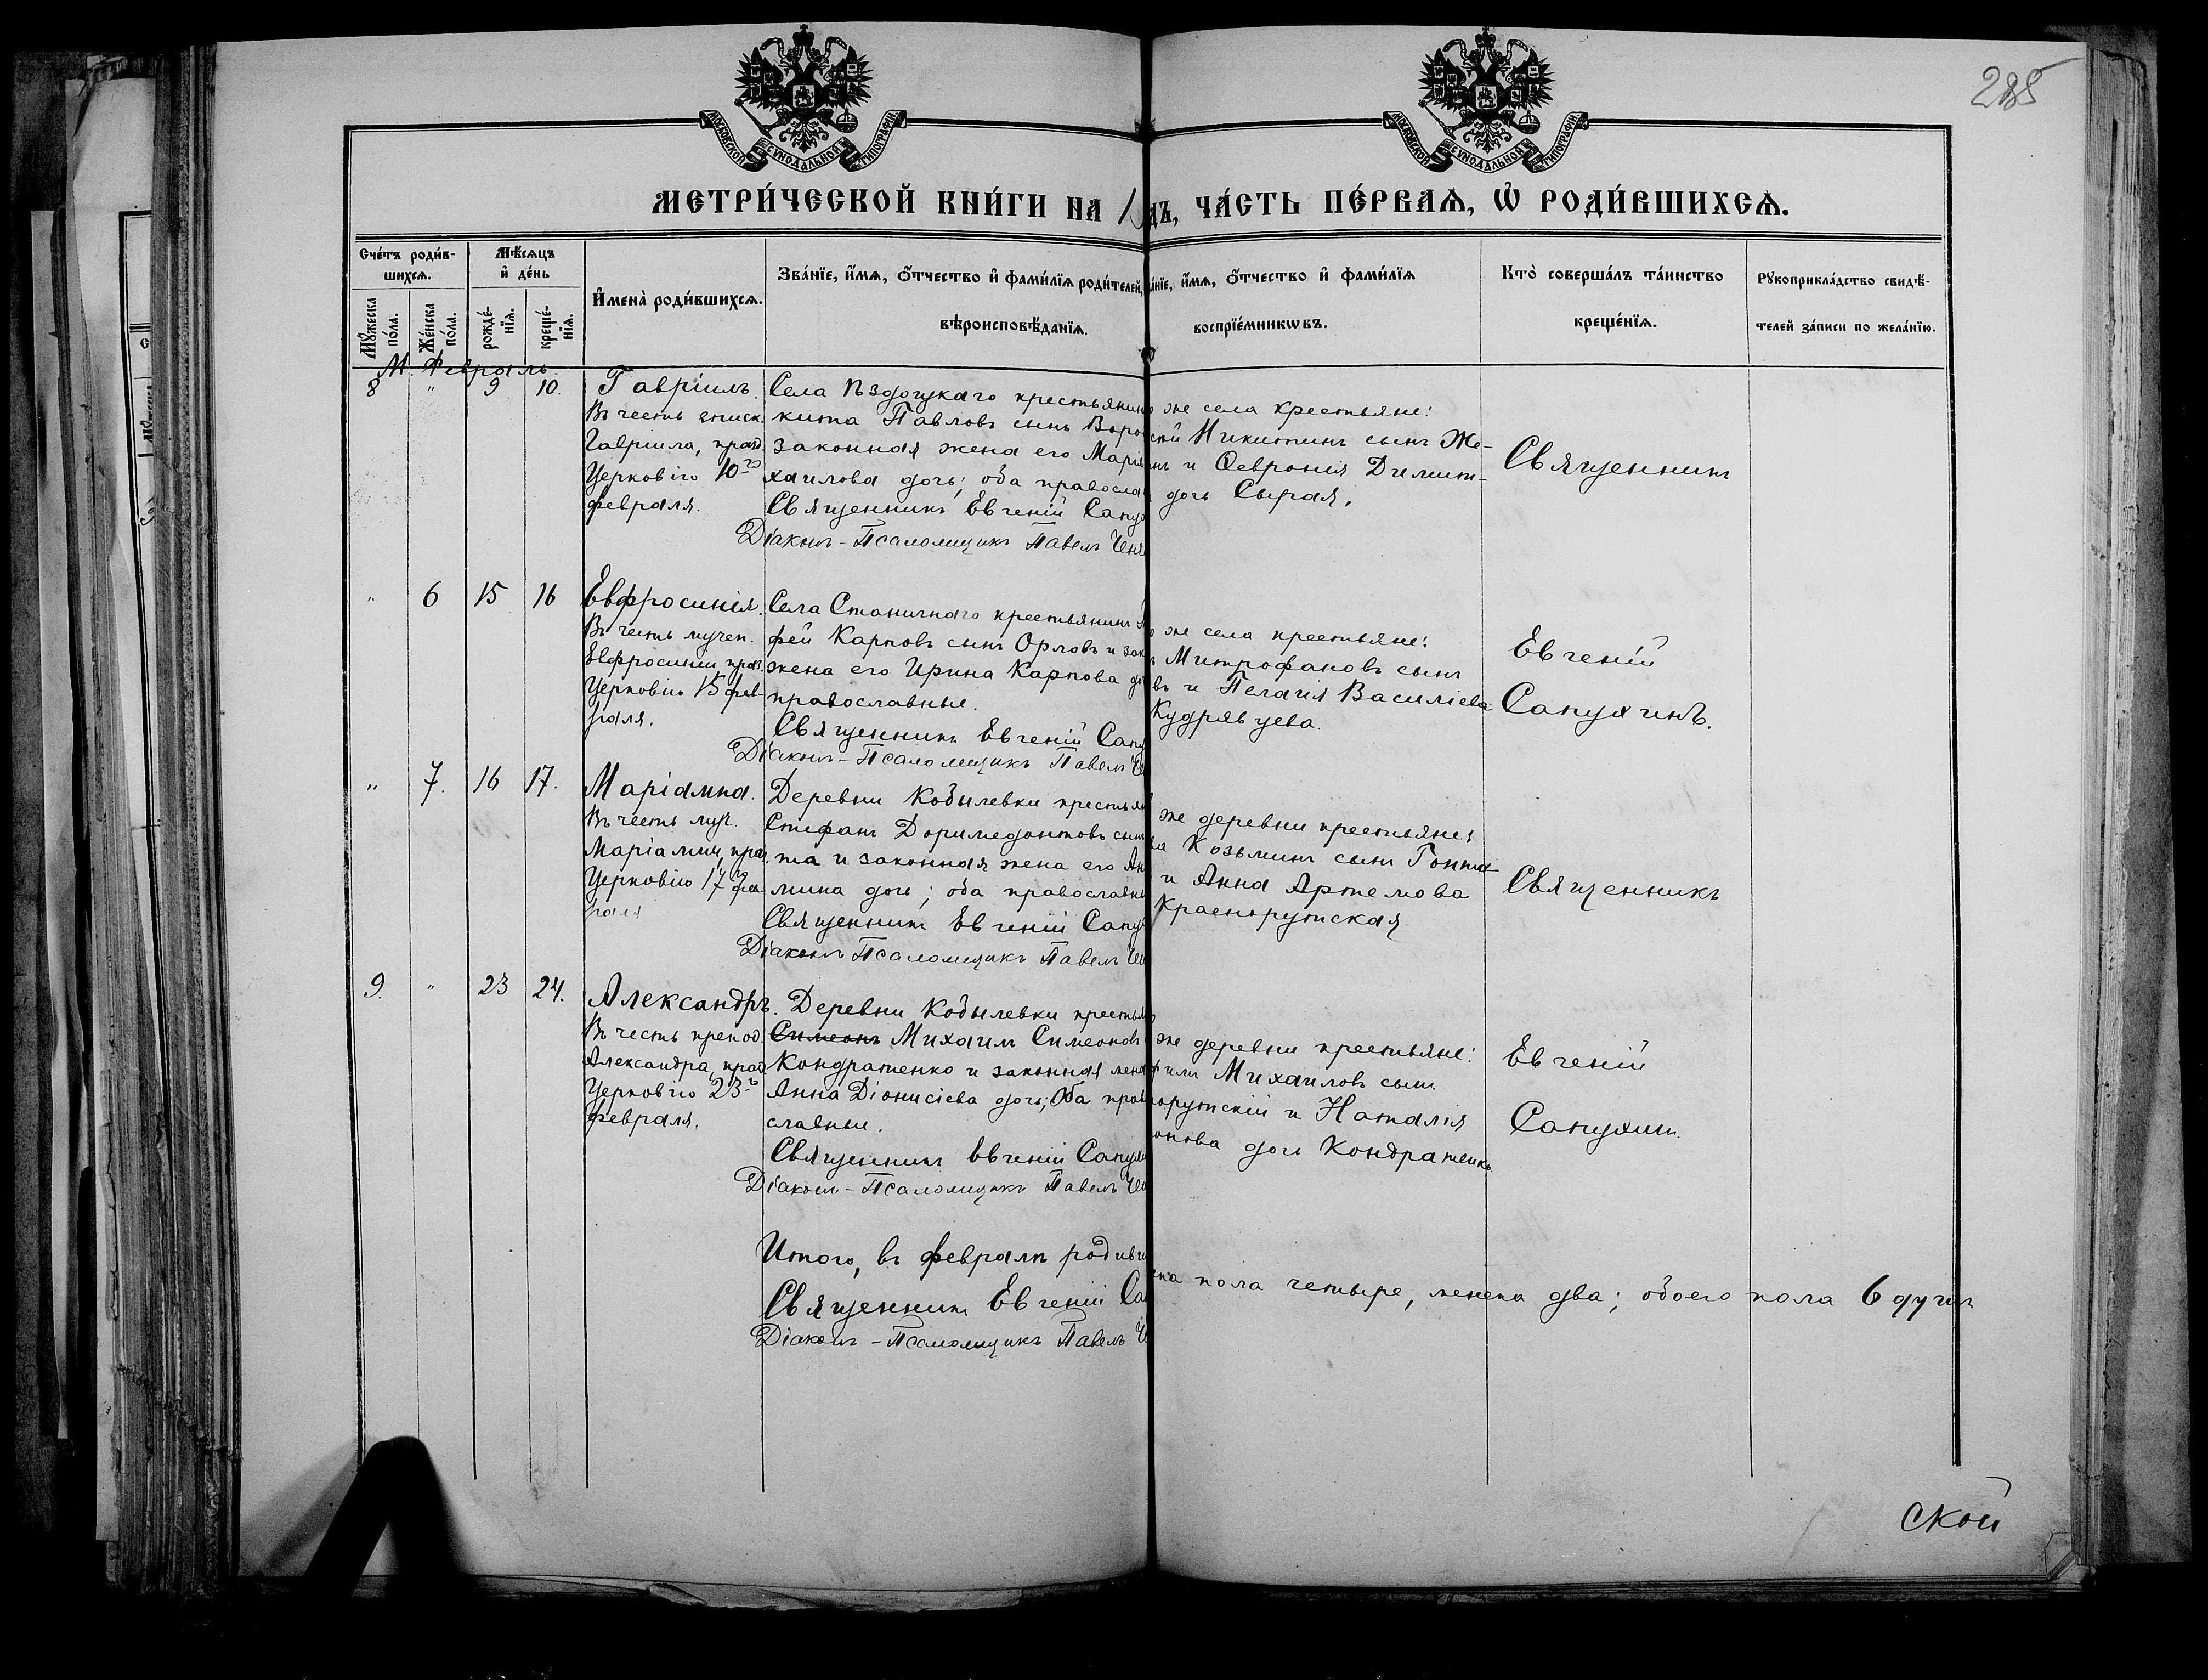 285
МОСКОВСКОЙ СѴНОДАЛЬНОЙ ТИПОГРАФІИ
МОСКОВСКОЙ СѴНОДАЛЬНОЙ ТИПОГРАФІИ
МЕТРИ́ЧЕСКОЙ КНИ́ГИ НА 1 ДЪ, ЧА́СТЬ ПЕ́РВАѦ, Ѡ҆ РОДИ́ВШИХСѦ.
Сче́тъ роди́в-
шихсѧ.
Мꙋ́жеска по́ла.
Же́нска по́ла.
Мѣ́сѧцъ и҆ де́нь
рожде́-
нїѧ.
креще́-
нїѧ.
И҆мена̀ роди́вшихсѧ.
Зва́нїе, и҆́мѧ, ѻ҆́тчество и҆ фами́лїѧ роди́телей,
вѣроисповѣ́данїѧ.
а́нїе, и҆́мѧ, ѻ҆́тчество и҆ фами́лїѧ
воспрїе́мникѡвъ.
Кто̀ соверша́лъ та́инство
креще́нїѧ.
Рꙋкоприкла́дство свидѣ́-
телей за́писи по жела́нїю.
М. Февраль.
8 " 9 10.
Гавріилъ.
Въ честь еписк.
Гавріила, празд.
Церковію 10го
февраля.
Села крестьянинъ
кита Павловъ сынъ
законная жена его Марія
хаилова дочь; оба правосла
Священникъ Евгеній Сапу
Діаконъ-Псаломщикъ Павелъ
же села крестьяне:
Никитинъ сынъ Же-
и Ѳевронія Димит-
дочь Сырая.
Священникъ
" 6 15 16
Евфросинія.
Въ честь мучен.
Евфросиніи, празд.
Церковію 15 фев-
раля.
Села Станичнаго крестьянинъ
фей Карповъ сынъ Орловъ и зак
жена его Ирина Карпова до
православные.
Священникъ Евгеній Сапу
Діаконъ-Псаломщикъ Павелъ
же села крестьяне:
Митрофановъ сынъ
въ и Пелагія Василіева
Кудрявцева.
Евгеній
Сапухинъ.
" 7. 16 17.
Маріамна.
Въ честь муч.
Маріамны, празд.
Церковію 17 фев-
раля
Деревни Кобылевки крестьян
Стефанъ Доримедонтовъ сынъ
та и законная жена его Ан
мина дочь; оба православн
Священникъ Евгеній Сапу
Діаконъ Псаломщикъ Павелъ
же деревни крестьяне:
Козьминъ сынъ Гонта
и Анна Артемова
Краснорутская
Священникъ
9. " 23 24.
Александръ.
Въ честь препод.
Александра, празд.
Церковію 23го
февраля.
Деревни Кобылевки крестьян
Симеонъ Михаилъ Симеоновъ
Кондратенко и законная жена
Анна Діонисіева дочь; Оба право
славные.
Священникъ Евгеній Сапух
Діаконъ-Псаломщикъ Павелъ
же деревни крестьяне:
Михаиловъ сынъ
орутскій и Наталія
онова дочь Кондратенко
Евгеній
Сапухинъ.
Итого, въ февралѣ родивш
ска пола четыре, женска два; обоего пола 6 душъ
Священникъ Евгеній Сап
Діаконъ-Псаломщикъ Павелъ
ской